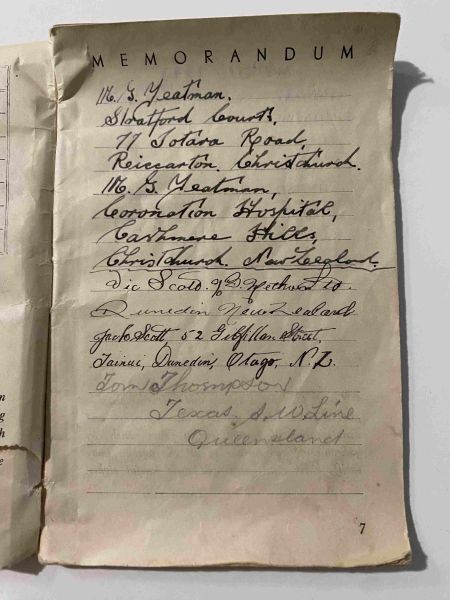 MEMORANDUM
M. G. Yeatman.
Stratford Courts,
77 Totara Road,
Reiccarton. Christchurch.
M. G. Yeatman,
Coronation Hospital,
Cashmere Hills,
Christchurch. New Zealand.
Vic Scott.
Dunedin New Zealand
Jack Scott, 52 Gilfillan Street,
Tainui, Dunedin, Otago, N.Z.
Tom Thompson
Texas. S.W. Line
Queensland
7